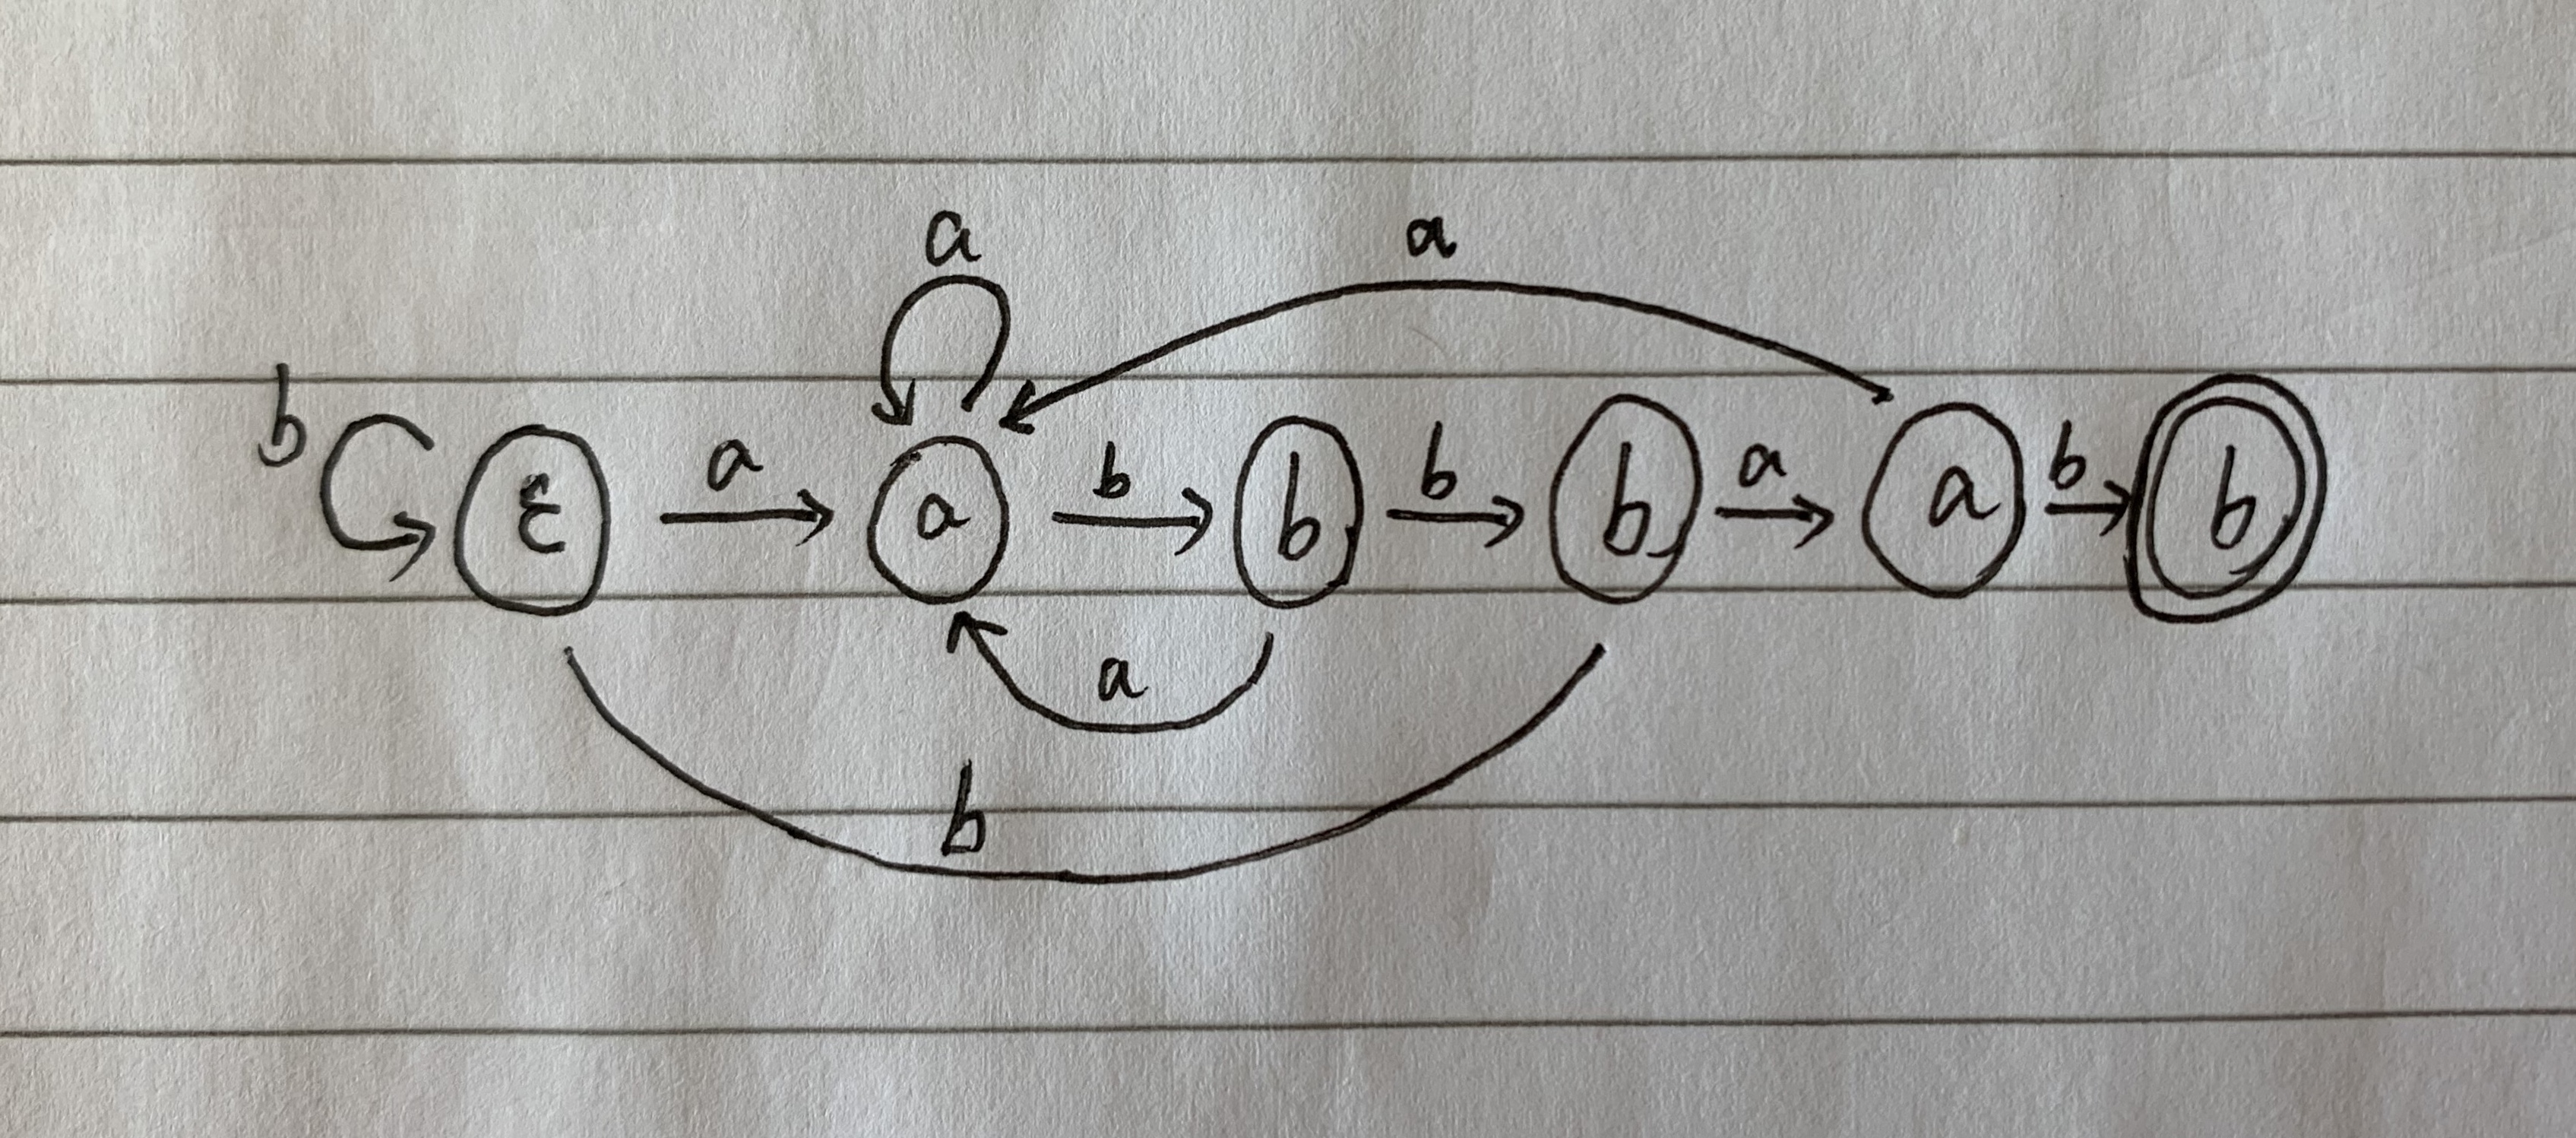 a a
b ε a a b b b b a a b b
a
b